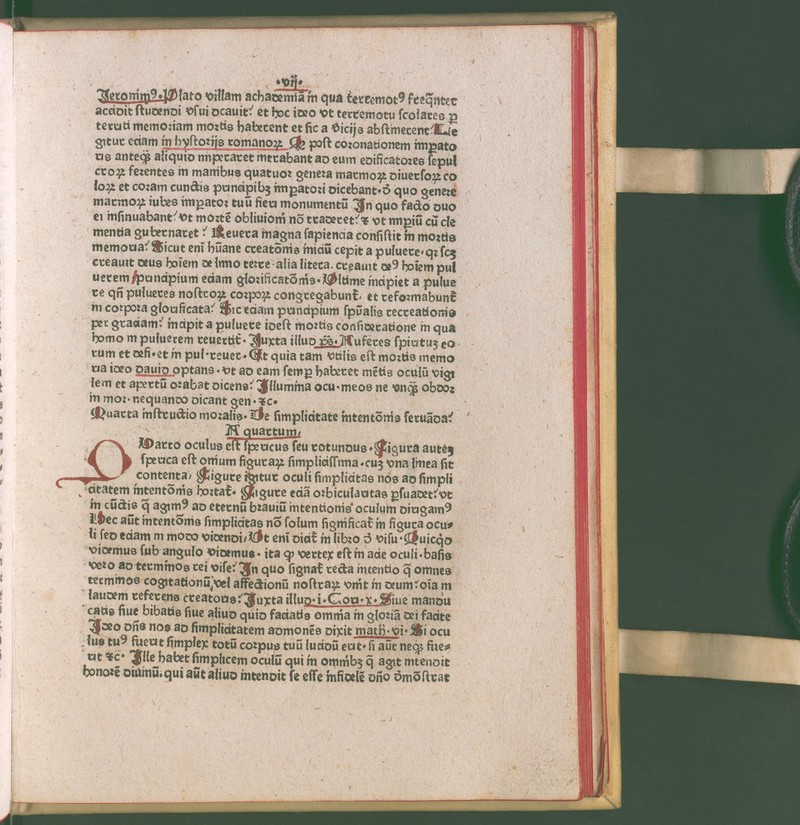 ·vij·
Jeronim⁹·Plato villam achademiā in qua terremot⁹ freq̄nter
accidit studendi vsui dicauit: et hoc ideo vt terremotu scolares ꝑ
territi memoriam mortis haberent et sic a vicijs abstinerent: Le
gitur eciam in hystorijs romanoꝝ Ꝙ post coronationem impato
ris anteq̄ aliquid imperaret intrabant ad eum edificatores sepul
croꝝ ferentes in manibus quatuor genera marmoꝝ diuersoꝝ co
loꝝ et coram cunctis principibꝫ impatori dicebant·d̄ quo genere
marmoꝝ iubes impator tuū fieri monumentū In quo facto duo
ei insinuabant: vt mortē obliuioni nō traderet: ⁊ vt impiū cū cle
mentia gubernaret: Reuera magna sapiencia consistit in mortis
memoria: Sicut eni hūane creatōnis iniciū cepit a puluere·qꝛ scꝫ
creauit deus hoīem de limo terre·alia litera·creauit de⁹ hoīem pul
uerem principium eciam glorificatōnis·Vltime incipiet a pulue
re qn̄ pulueres nostroꝝ corpoꝝ congregabunt̄· et reformabunt̄
in corpora glorificata: Sic eciam principium spūalis recreationis
per graciam: incipit a puluere idest mortis consideratione in qua
homo in puluerem reuertit̄· Juxta illud p̄s· Auferes spiritūꝫ eo
rum et defi·et in pul·reuer· Et quia tam vtilis est mortis memo
ria ideo dauid optans·vt ad eam semꝑ haberet mētis oculū vigi
lem et apertū orabat dicens: Illumina ocu·meos ne vnq̄ obdor
in mor·nequando dicant gen·⁊c·
Quarta instructio moralis·De simplicitate intentōnis seruāda:
A quartum·
Quarto oculus est spericus seu rotundus·Figura auteꝫ
sperica est omnium figuraꝝ simplicissima·cuꝫ vna linea sit
contenta/ Figure igitur oculi simplicitas nos ad simpli
citatem intentōnis hortat̄· Figure eciā orbicularitas ꝑsuadet: vt
in cūctis q̄ agim⁹ ad eternū brauiū intentionis oculum dirigam⁹
Nec aūt intentōnis simplicitas nō solum significat̄ in figura ocu⸗
li sed eciam in modo videndi/ Vt eni dicit̄ in libro d̄ visu·Quicqd
videmus sub angulo videmus· ita ꝙ vertex est in acie oculi·basis
vero ad terminos rei vise: In quo signat̄ recta intentio q̄ omnes
terminos cogitationū vel affectionū nostraꝝ vnit in deum: oīa in
laudem referens creatoris: Juxta illud·i·Cor·x·Siue mandu
catis siue bibatis siue aliud quid faciatis omnia in gloriā dei facite
Ideo dn̄s nos ad simplicitatem admonēs dixit math·vi·Si ocu
lus tu⁹ fuerit simplex totū corpus tuū lucidū erit·si aūt neqꝫ fue⸗
rit ⁊c· Ille habet simplicem oculū qui in omnibꝫ q̄ agit intendit
honorē diuinū·qui aūt aliud intendit se esse infidelē dn̄o dem̄ōstrat